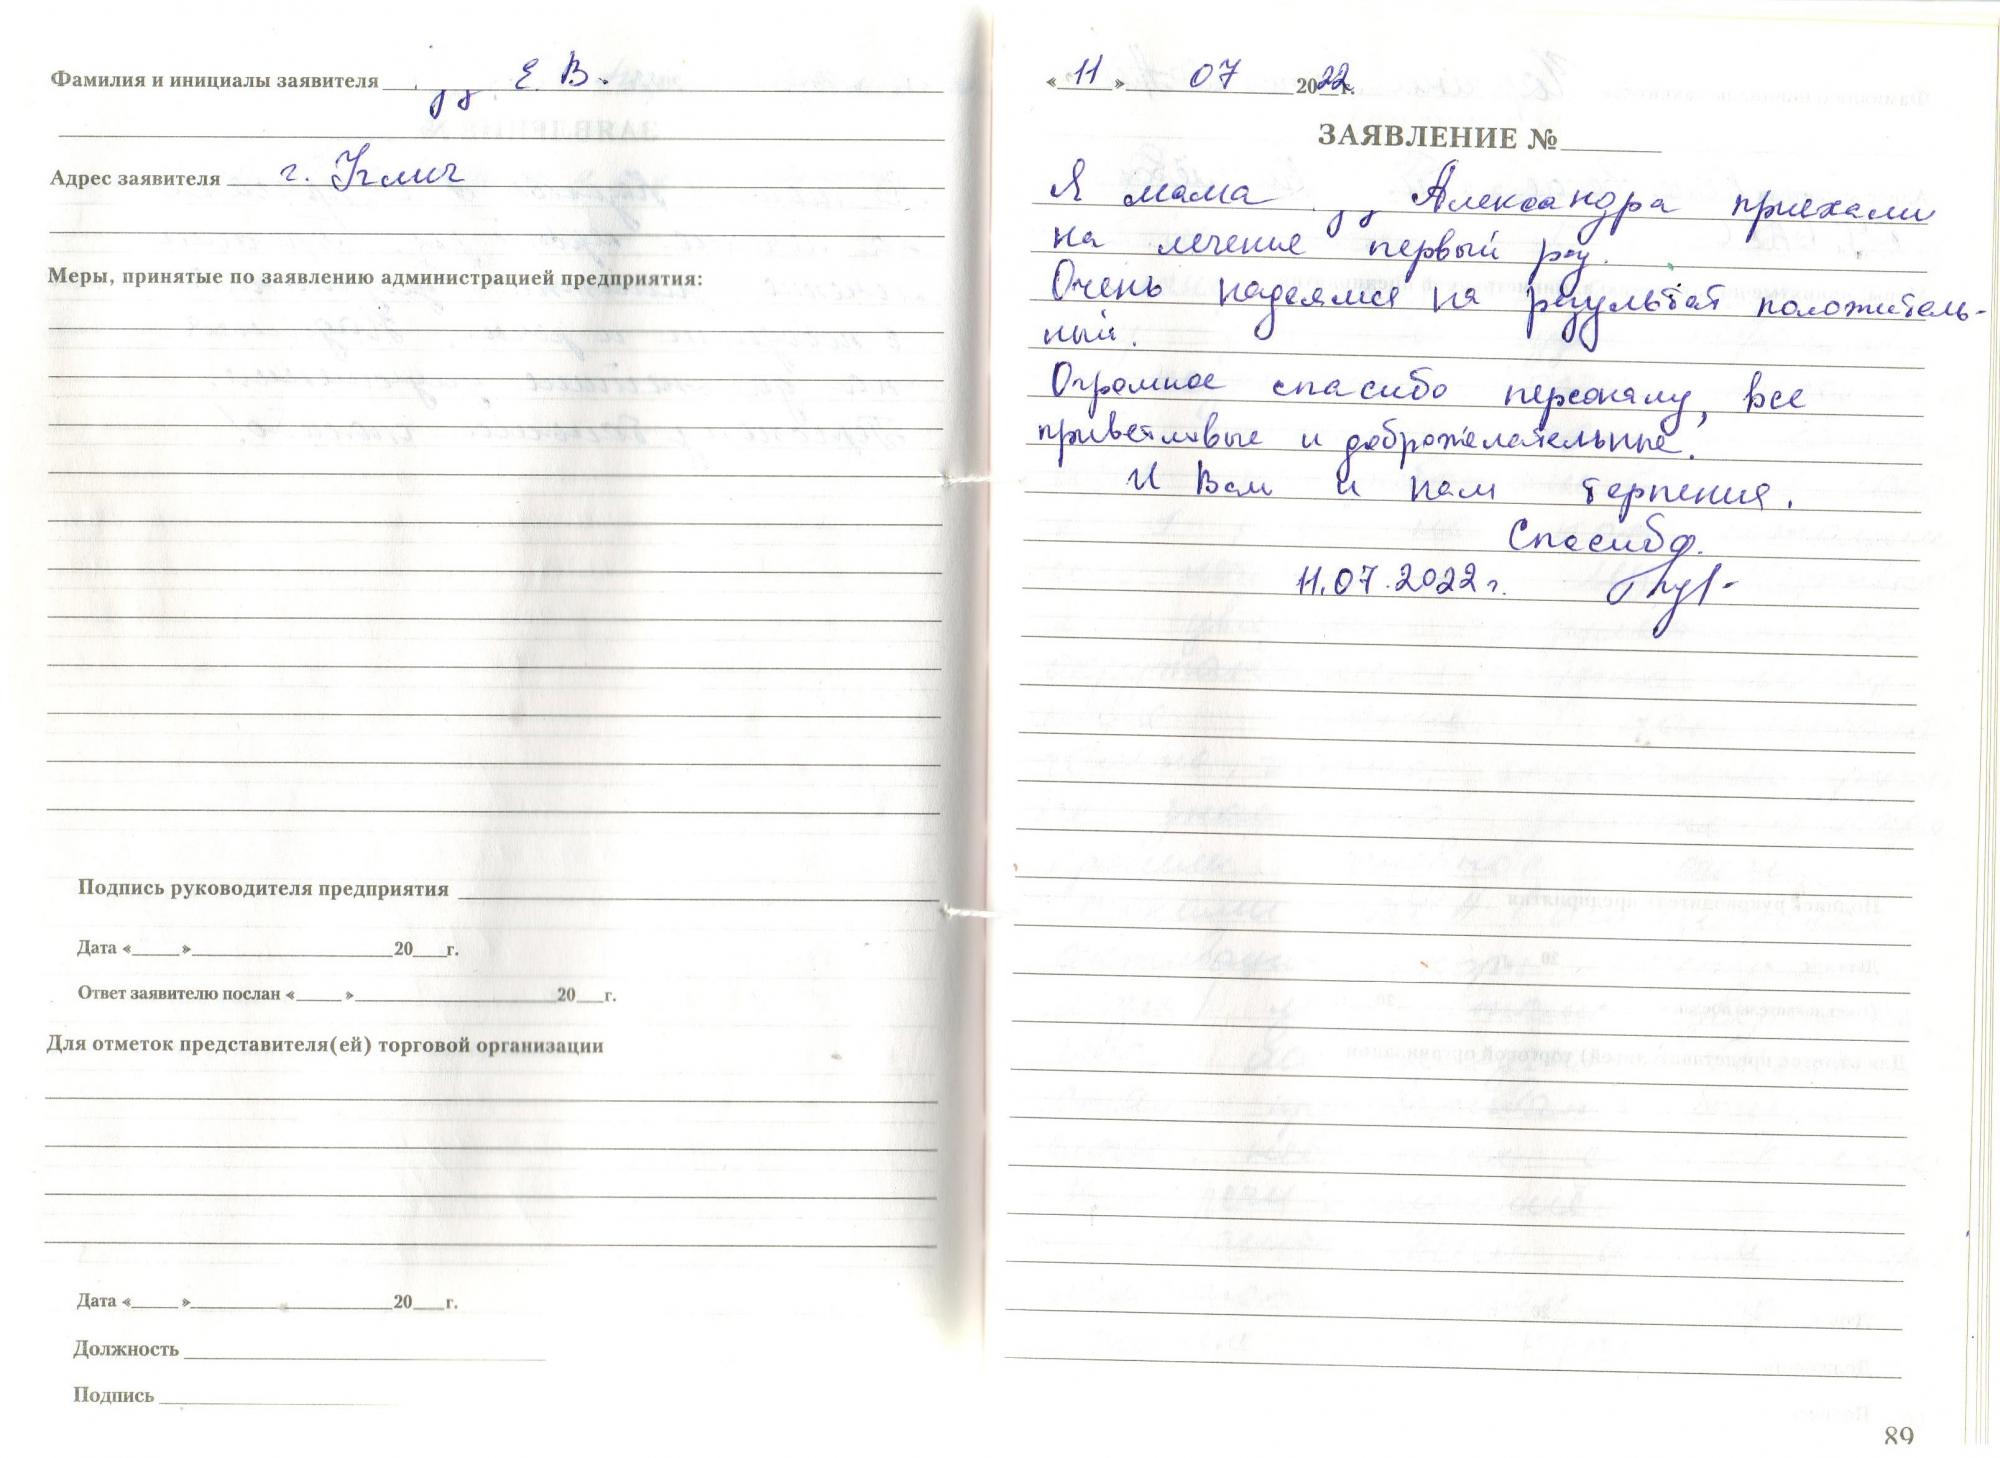 Фамилия и инициалы заявителя Е. В.
Адрес заявителя г. Углич
Меры, принятые по заявлению администрацией предприятия:
Подпись руководителя предприятия
Дата «____»____20__г.
Ответ заявителю послан «____»____20__г.
Для отметок представителя(ей) торговой организации
Дата «____»____20__г.
Должность
Подпись
«11» 07 2022г.
ЗАЯВЛЕНИЕ №
Я мама Александра приехали
на лечение первый раз.
Очень надеямся на результат положитель-
ный.
Огромное спасибо персоналу, все
приветливые и доброжелательные.
И Вам и нам терпения.
Спасибо.
11.07.2022г.
89